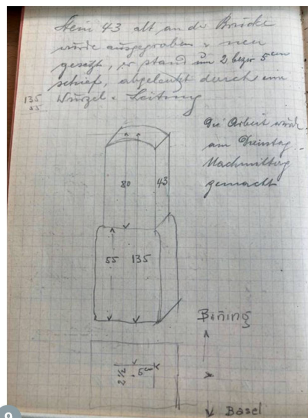 Stein 43 alt an der Brücke
wurde ausgegraben & neu
gesetzt, er stand um 2 bezw 5 cm
schief, abgelenkt durch eine
Wurzel & Leitung
135
55
Die Arbeit wurde
am Dienstag
Nachmittag
gemacht
80
43
55
135
Bining
2 1/2
5 cm
Basel
9